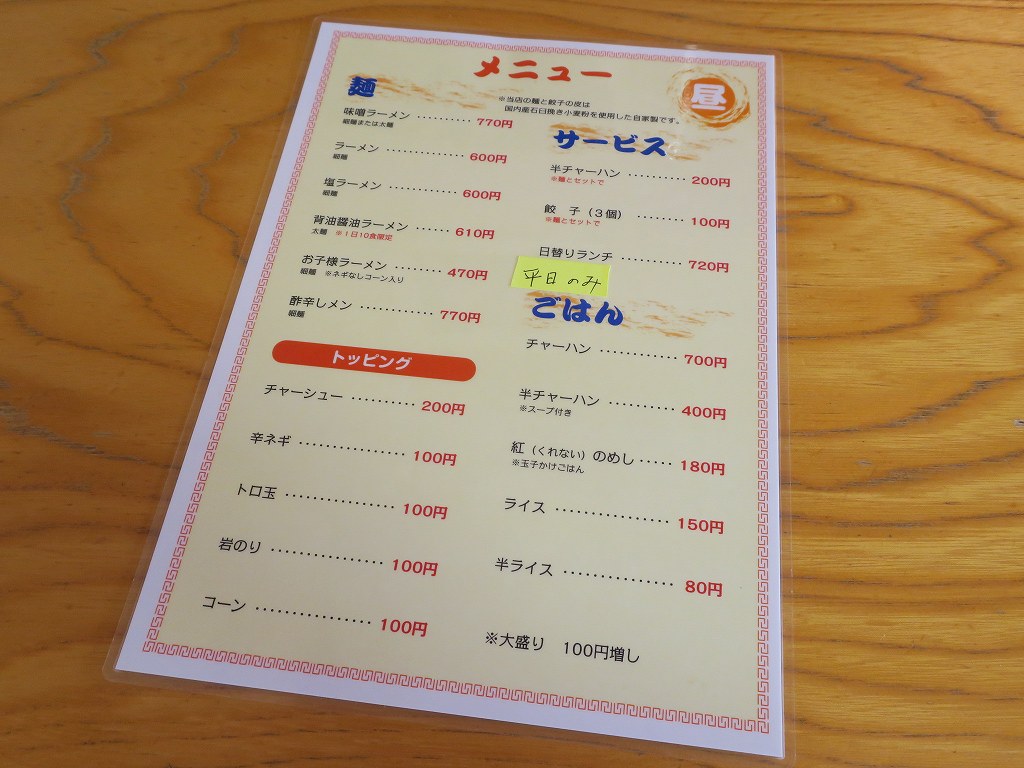 メニュー
昼
※当店の麺と餃子の皮は
国内産石臼挽き小麦粉を使用した自家製です。
麺
味噌ラーメン ・・・・・・・・・・ 770円
細麺または太麺
ラーメン ・・・・・・・・・・・・・・ 600円
細麺
塩ラーメン ・・・・・・・・・・・・ 600円
細麺
背油醤油ラーメン ・・・・・・ 610円
太麺 ※1日10食限定
お子様ラーメン ・・・・・・・・・ 470円
細麺 ※ネギなしコーン入り
酢辛しメン ・・・・・・・・・・・・・ 770円
細麺
トッピング
チャーシュー ・・・・・・・・・・ 200円
辛ネギ ・・・・・・・・・・・・・・・ 100円
トロ玉 ・・・・・・・・・・・・・・・ 100円
岩のり ・・・・・・・・・・・・・・・ 100円
コーン ・・・・・・・・・・・・・・・・ 100円
サービス
半チャーハン ・・・・・・・・・・ 200円
※麺とセットで
餃 子(3個) ・・・・・・・・ 100円
※麺とセットで
日替りランチ ・・・・・・・・・・ 720円
平日のみ
ごはん
チャーハン ・・・・・・・・・・・・ 700円
半チャーハン ・・・・・・・・・・ 400円
※スープ付き
紅(くれない)のめし ・・・・・ 180円
※玉子かけごはん
ライス ・・・・・・・・・・・・・・・・ 150円
半ライス ・・・・・・・・・・・・・・・ 80円
※大盛り 100円増し